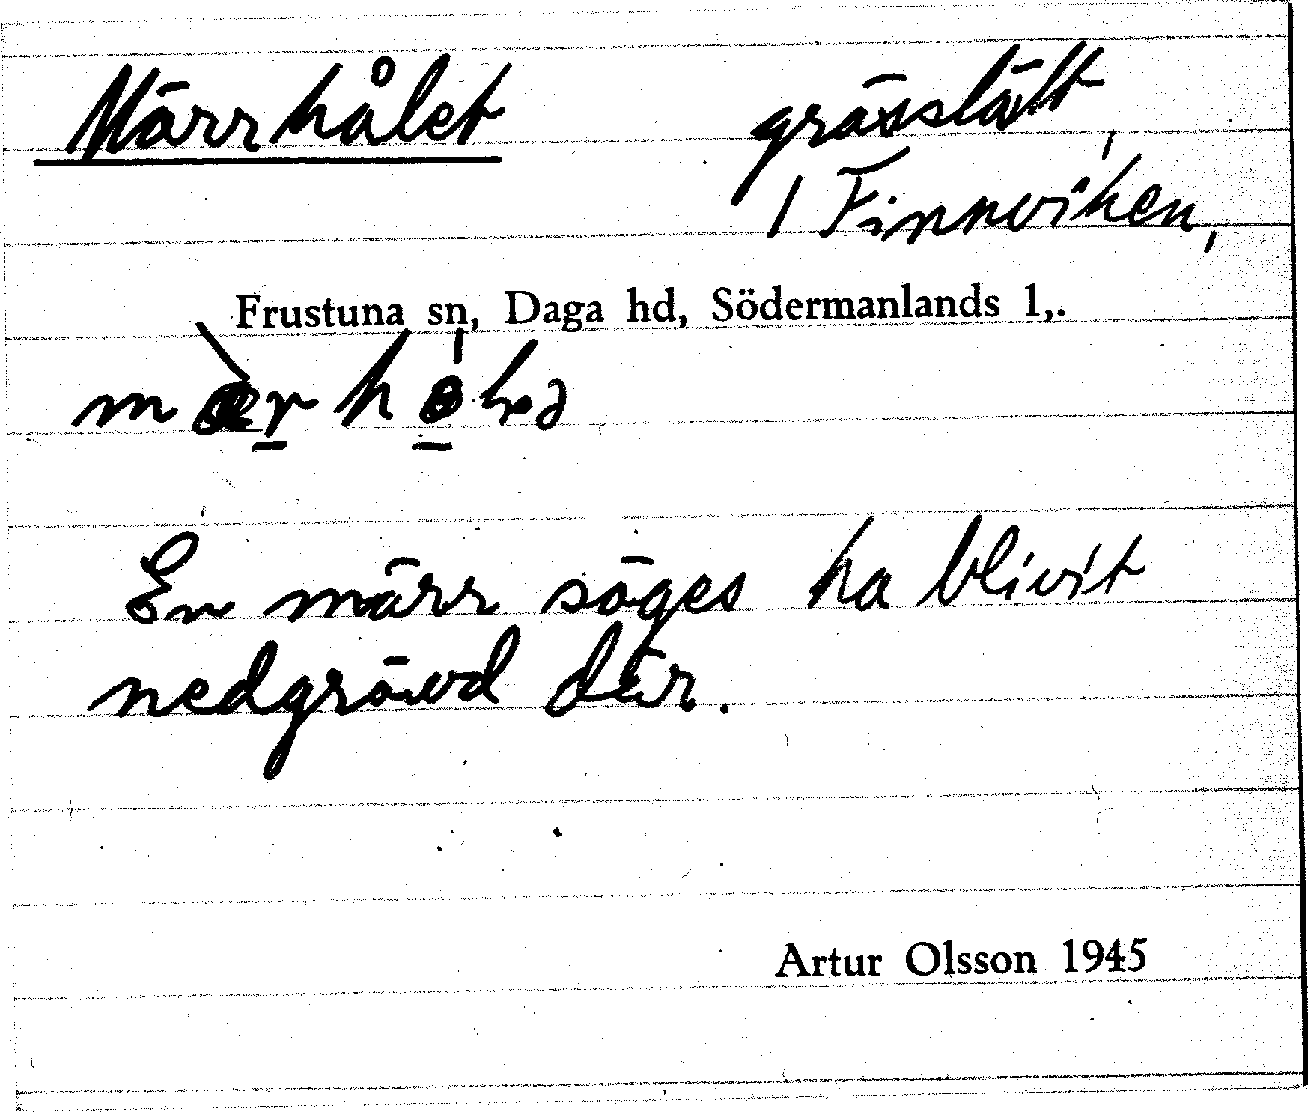 Märrhålet grässlätt,
1 Finnviken,
Frustuna sn, Daga hd, Södermanlands l,.
En märr säges ha blivit
nedgrävd där.
Artur Olsson 1945